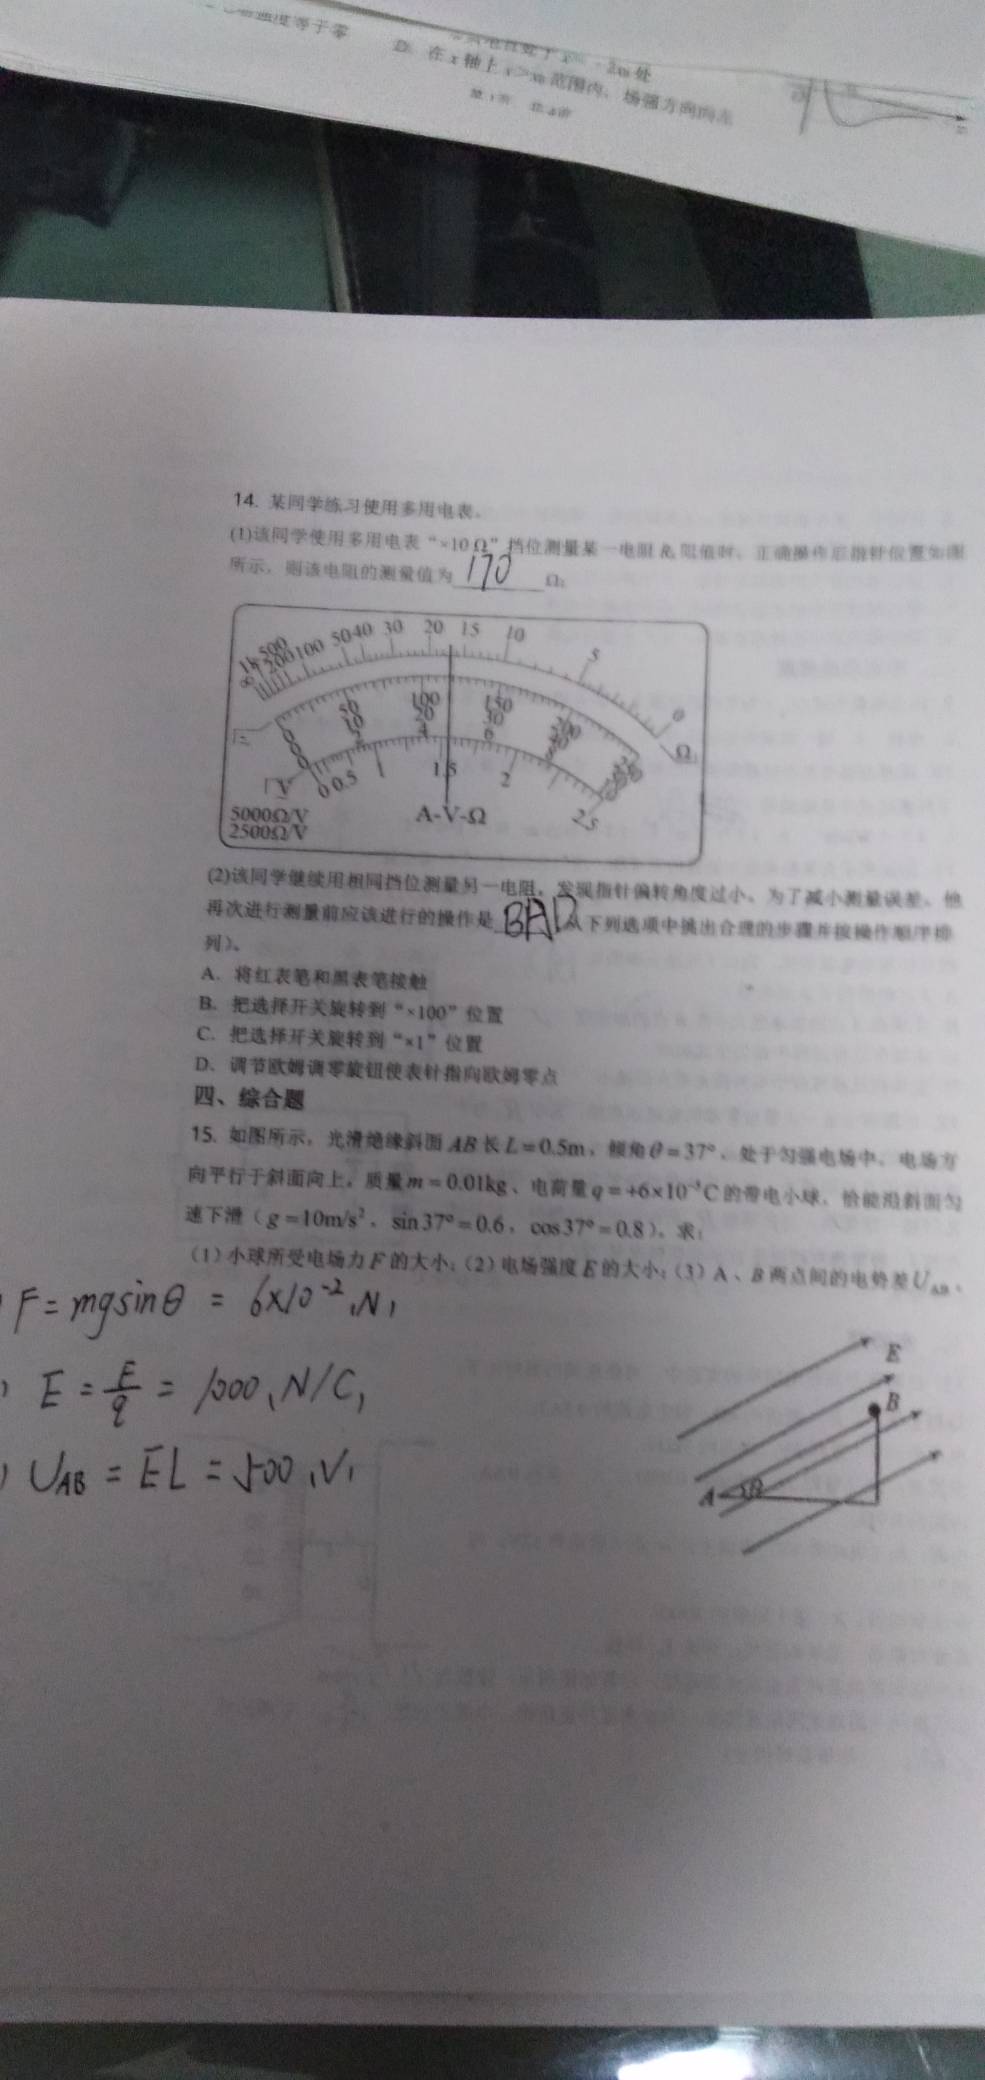 强度等于零
D. 在 x 轴上 x>x₀ 范围内，场强方向向左
14. 某同学练习使用多用电表。
(1)该同学使用多用电表“×10 Ω”挡位测量某一电阻 Rₓ 阻值时，正确操作后指针位置如图
所示，则该电阻的测量值为 170 Ω；
∞ 1k 500 200 100 50 40 30 20 15 10 5 0 Ω
0 50 100 150 200 250
0 10 20 30 40 50
0 2 4 6 8 10
V 0 0.5 1 1.5 2 2.5
5000Ω/V
2500Ω/V
A-V-Ω
(2)该同学继续用相同挡位测量另一电阻，发现指针偏转角度过小，为了减小测量误差，他
再次进行测量前应该进行的操作是 BAD 从下列选项中挑出合理的步骤并按操作顺序排
列)。
A．将红表笔和黑表笔接触
B．把选择开关旋转到“×100”位置
C．把选择开关旋转到“×1”位置
D、调节欧姆调零旋钮使表针指向欧姆零点
四、综合题
15. 如图所示，光滑绝缘斜面 AB 长 L=0.5m，倾角 θ=37°，处于匀强电场中，电场方
向平行于斜面向上，质量 m=0.01kg、电荷量 q=+6×10⁻⁵C 的带电小球，恰能沿斜面匀
速下滑（g=10m/s²，sin37°=0.6，cos37°=0.8），求：
（1）小球所受电场力 F 的大小；（2）电场强度 E 的大小；（3）A、B 两点间的电势差 U_AB．
F=mgsinθ = 6×10⁻²(N)
E
E = F/q = 1000(N/C)
B
U_AB = EL = 500(V)
A θ